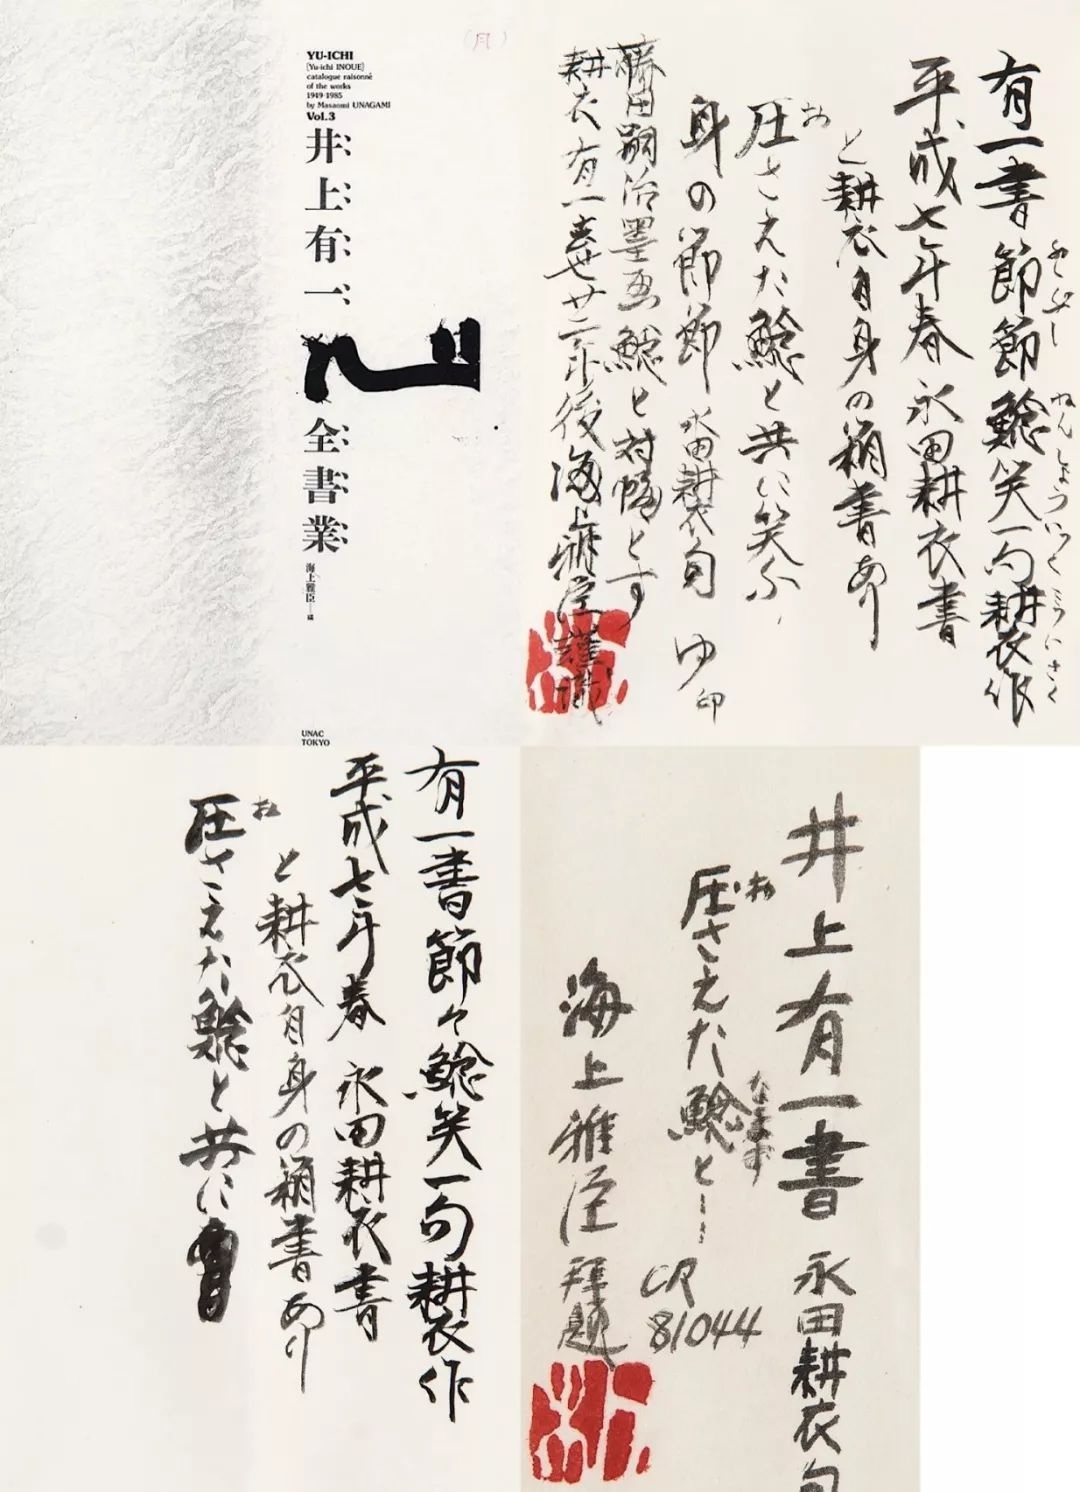 (月)
YU-ICHI
[Yu-ichi INOUE]
catalogue raisonné
of the works
1949-1985
by Masaomi UNAGAMI
Vol.3
井上有一
全書業
海上雅臣—編
UNAC
TOKYO
有一書節節鯰笑一句耕衣作
ねんしょういっくこういさく
平成七年春 永田耕衣書
と耕衣自身の箱書あり
圧さえた鯰と共に笑ふ
お
身の節節 永田耕衣句 ゆ印
齋田嗣治墨画鯰と対幅とす
耕衣有一妻世廿二年後海上雅臣謹識
有一書節々鯰笑一句耕衣作
平成七年春 永田耕衣書
と耕衣自身の箱書あり
圧さえた鯰と共に
お
井上有一書 永田耕衣句
圧さえた鯰と—
お
なまず
CR
81044
海上雅臣拜題